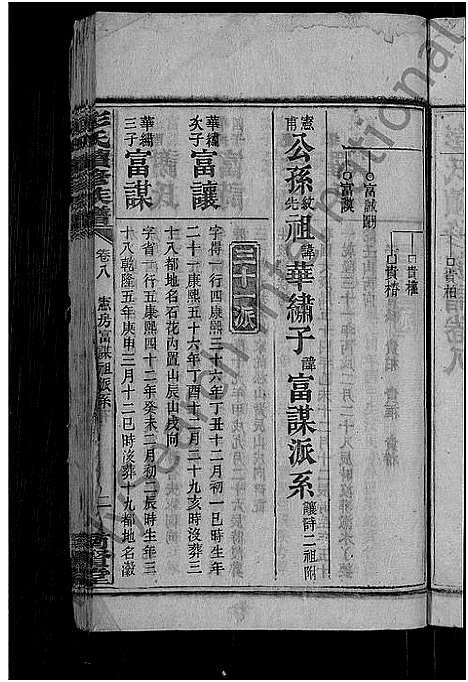 富謨
貴權
貴椿
憲甫公孫紋先祖諱華繡子諱富謀派系讓詩二祖附
華繡次子富讓
字得一行四康熙三十六年丁丑十二月初一巳時生年
二十一康熙五十六年丁酉十二月二十九亥時没葬三
十八都地名石花内置山辰山戌向
華繡三子富謀
字省一行五康熙四十二年癸未二月初二辰時生年三
十八乾隆五年庚申三月十二巳時没葬十九都地名澂
彭氏續修族譜
卷八
憲房富謀祖派系
二